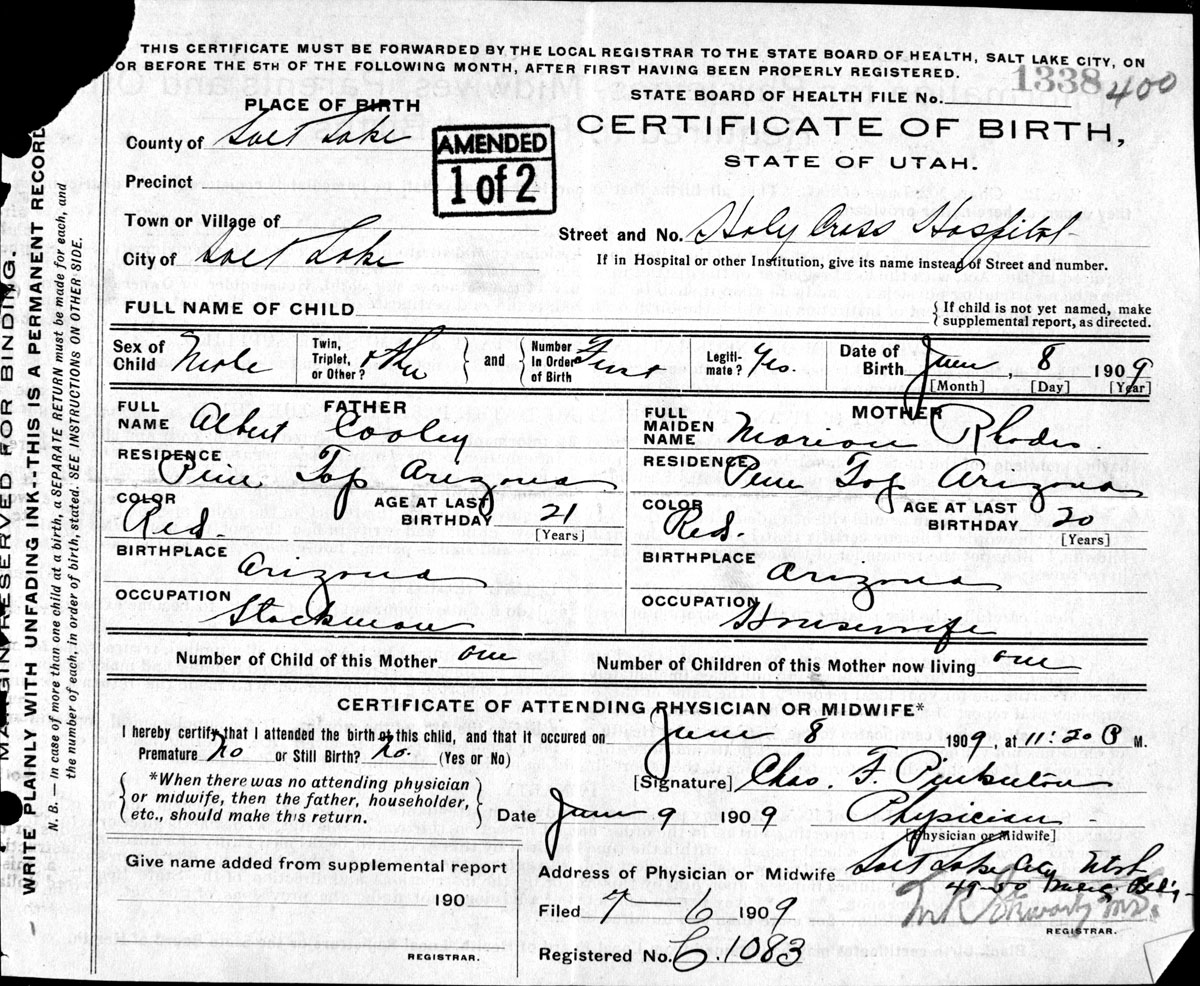 THIS CERTIFICATE MUST BE FORWARDED BY THE LOCAL REGISTRAR TO THE STATE BOARD OF HEALTH, SALT LAKE CITY, ON
OR BEFORE THE 5TH OF THE FOLLOWING MONTH, AFTER FIRST HAVING BEEN PROPERLY REGISTERED.
STATE BOARD OF HEALTH FILE No. 1338 400
CERTIFICATE OF BIRTH,
STATE OF UTAH.
PLACE OF BIRTH
County of Salt Lake
AMENDED
1 of 2
Precinct
Town or Village of
City of Salt Lake
Street and No. Holy Cross Hospital
If in Hospital or other Institution, give its name instead of Street and number.
FULL NAME OF CHILD
If child is not yet named, make
supplemental report, as directed.
Sex of Child Male
Twin, Triplet, or Other? other
and
Number In Order of Birth First
Legitimate? Yes.
Date of Birth June 8 1909
[Month] [Day] [Year]
FATHER
FULL NAME Albert Cooley
RESIDENCE Pine Top Arizona
COLOR Red.
AGE AT LAST BIRTHDAY 21
[Years]
BIRTHPLACE Arizona
OCCUPATION Stockman
MOTHER
FULL MAIDEN NAME Marion Rhodes
RESIDENCE Pine Top Arizona
COLOR Red.
AGE AT LAST BIRTHDAY 20
[Years]
BIRTHPLACE Arizona
OCCUPATION Housewife
Number of Child of this Mother one
Number of Children of this Mother now living one
CERTIFICATE OF ATTENDING PHYSICIAN OR MIDWIFE*
I hereby certify that I attended the birth of this child, and that it occured on June 8 1909, at 11:20 P M.
Premature No or Still Birth? No. (Yes or No)
*When there was no attending physician
or midwife, then the father, householder,
etc., should make this return.
[Signature] Chas. F. Pinkerton
Date June 9 1909 Physician
[Physician or Midwife]
Give name added from supplemental report
190
REGISTRAR.
Address of Physician or Midwife Salt Lake City Utah
49-50
Filed 7 6 1909
REGISTRAR.
Registered No. C. 1083
MARGIN RESERVED FOR BINDING.
WRITE PLAINLY WITH UNFADING INK.-THIS IS A PERMANENT RECORD
N. B. — In case of more than one child at a birth, a SEPARATE RETURN must be made for each, and
the number of each, in order of birth, stated. SEE INSTRUCTIONS ON OTHER SIDE.